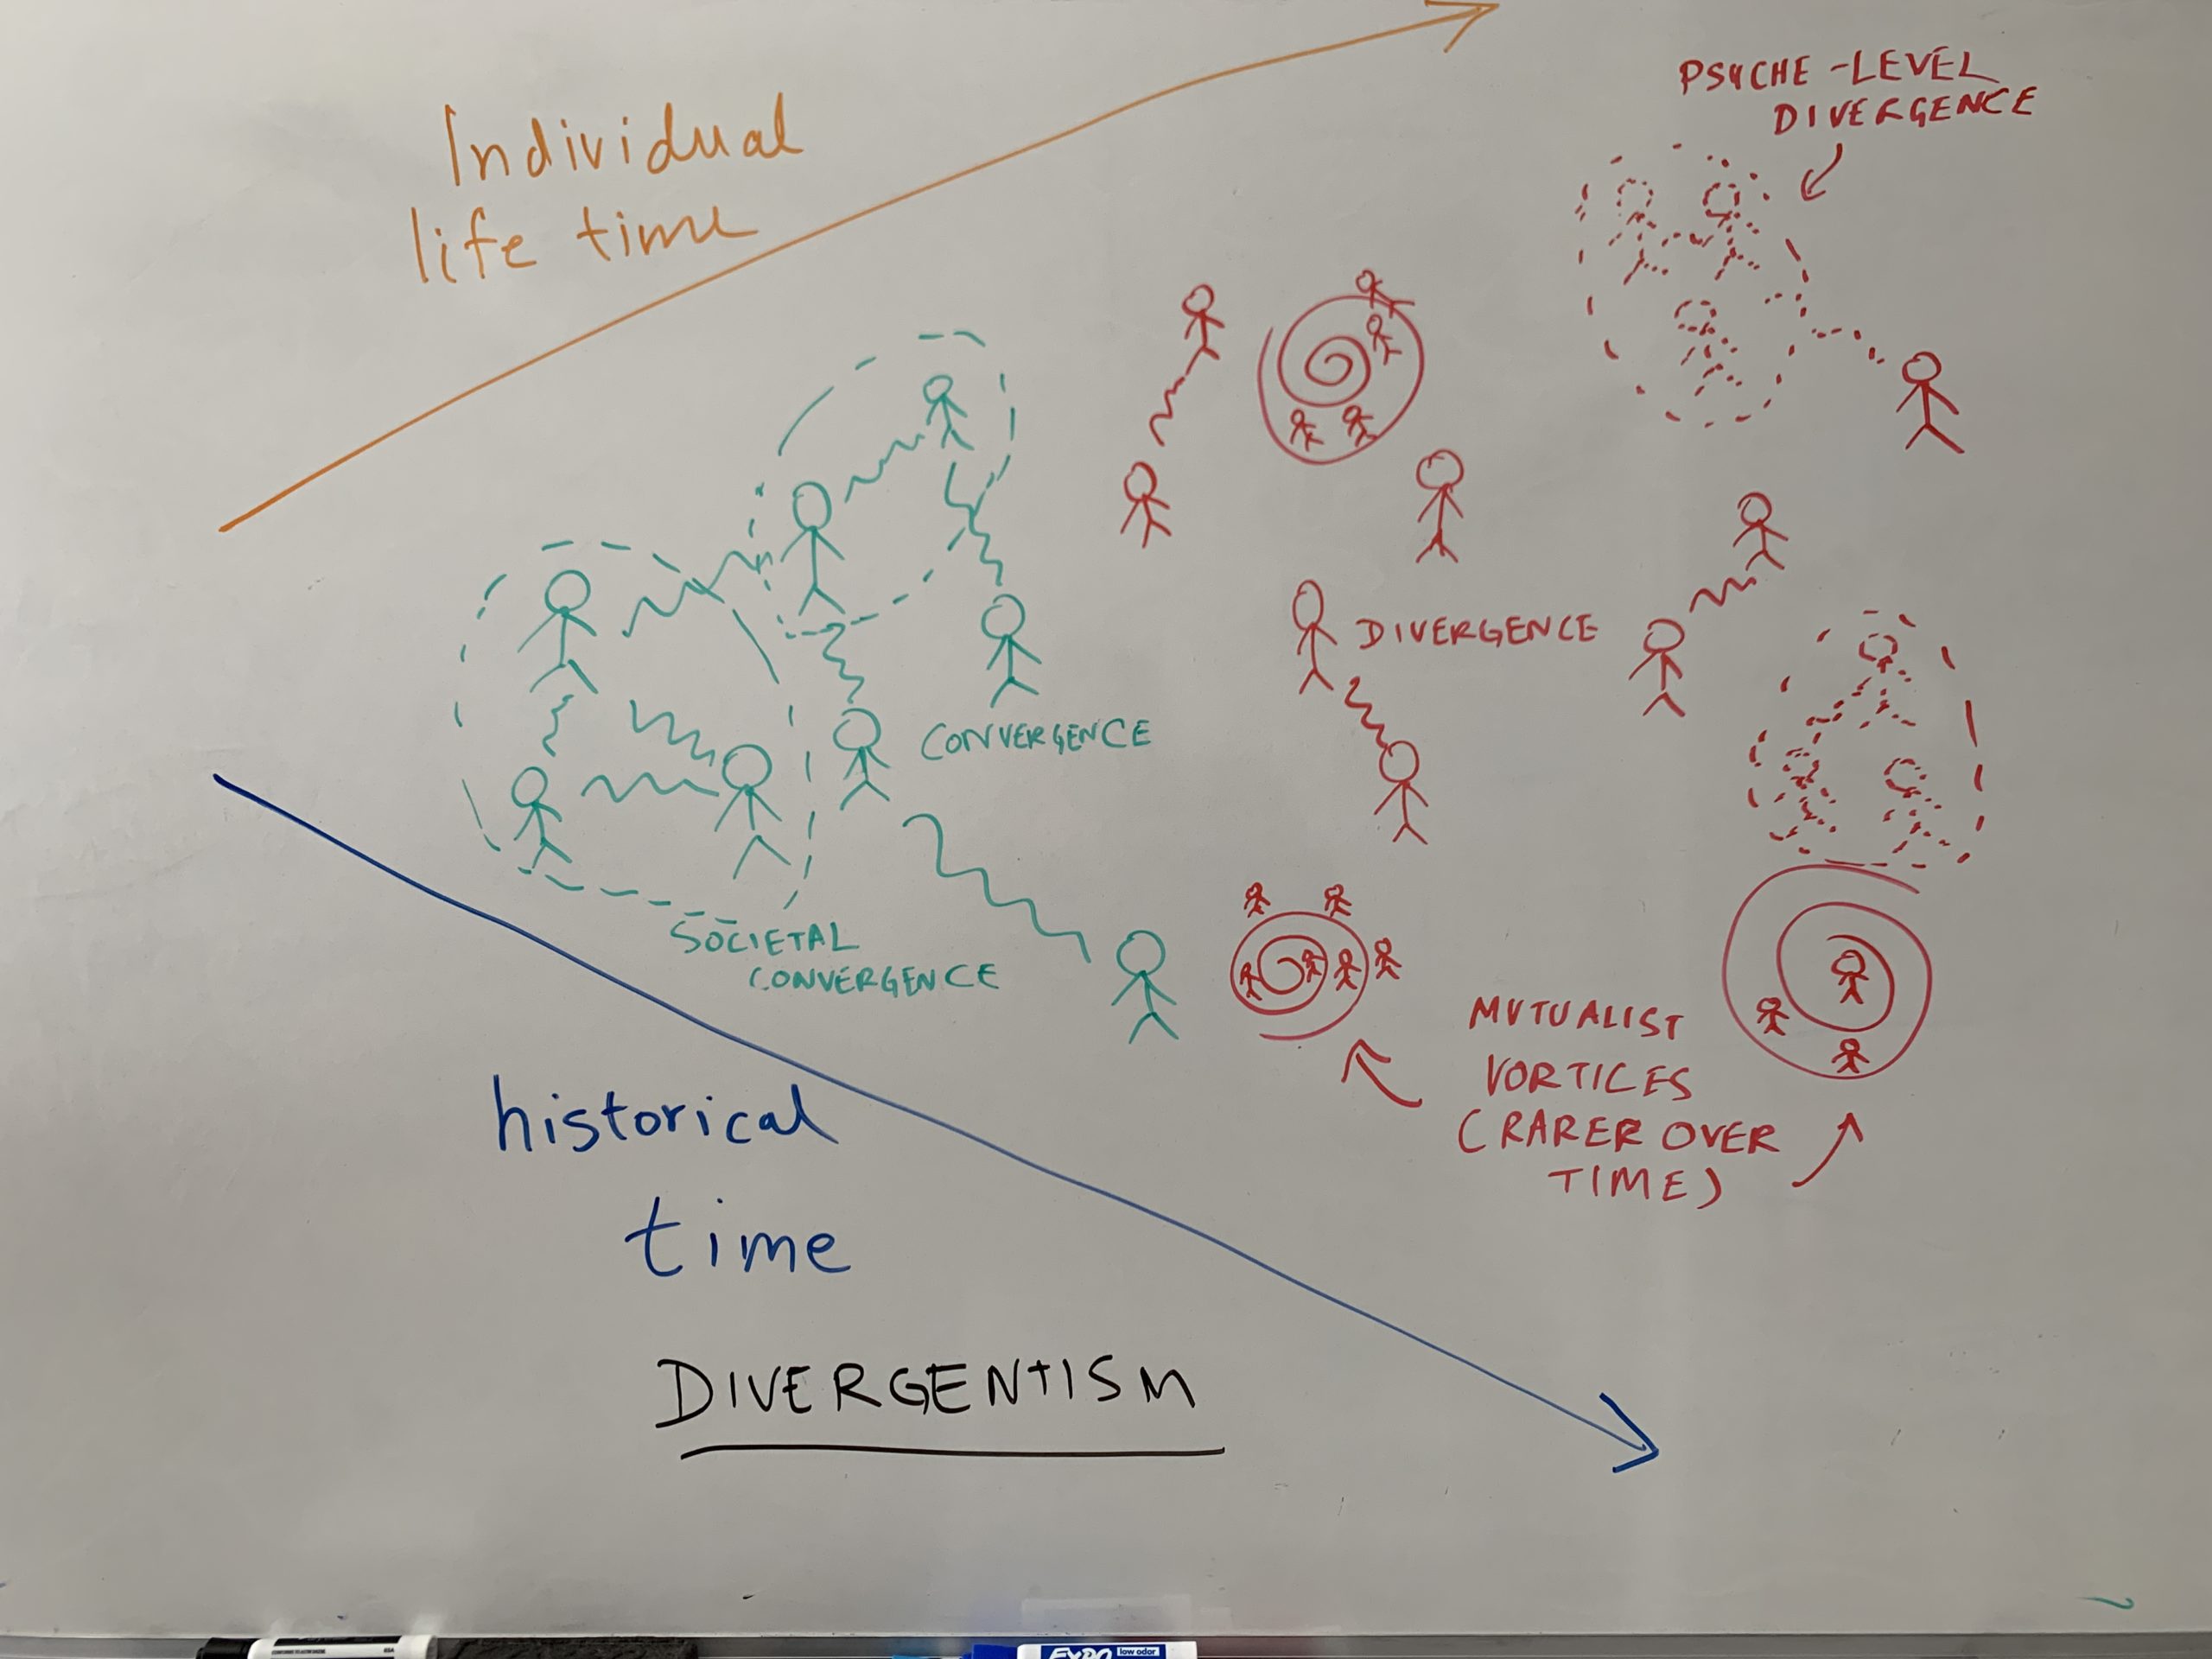 PSYCHE-LEVEL
DIVERGENCE
Individual
life time
DIVERGENCE
CONVERGENCE
SOCIETAL
CONVERGENCE
MUTUALIST
VORTICES
(RARER OVER
TIME)
historical
time
DIVERGENTISM
EXPO low odor